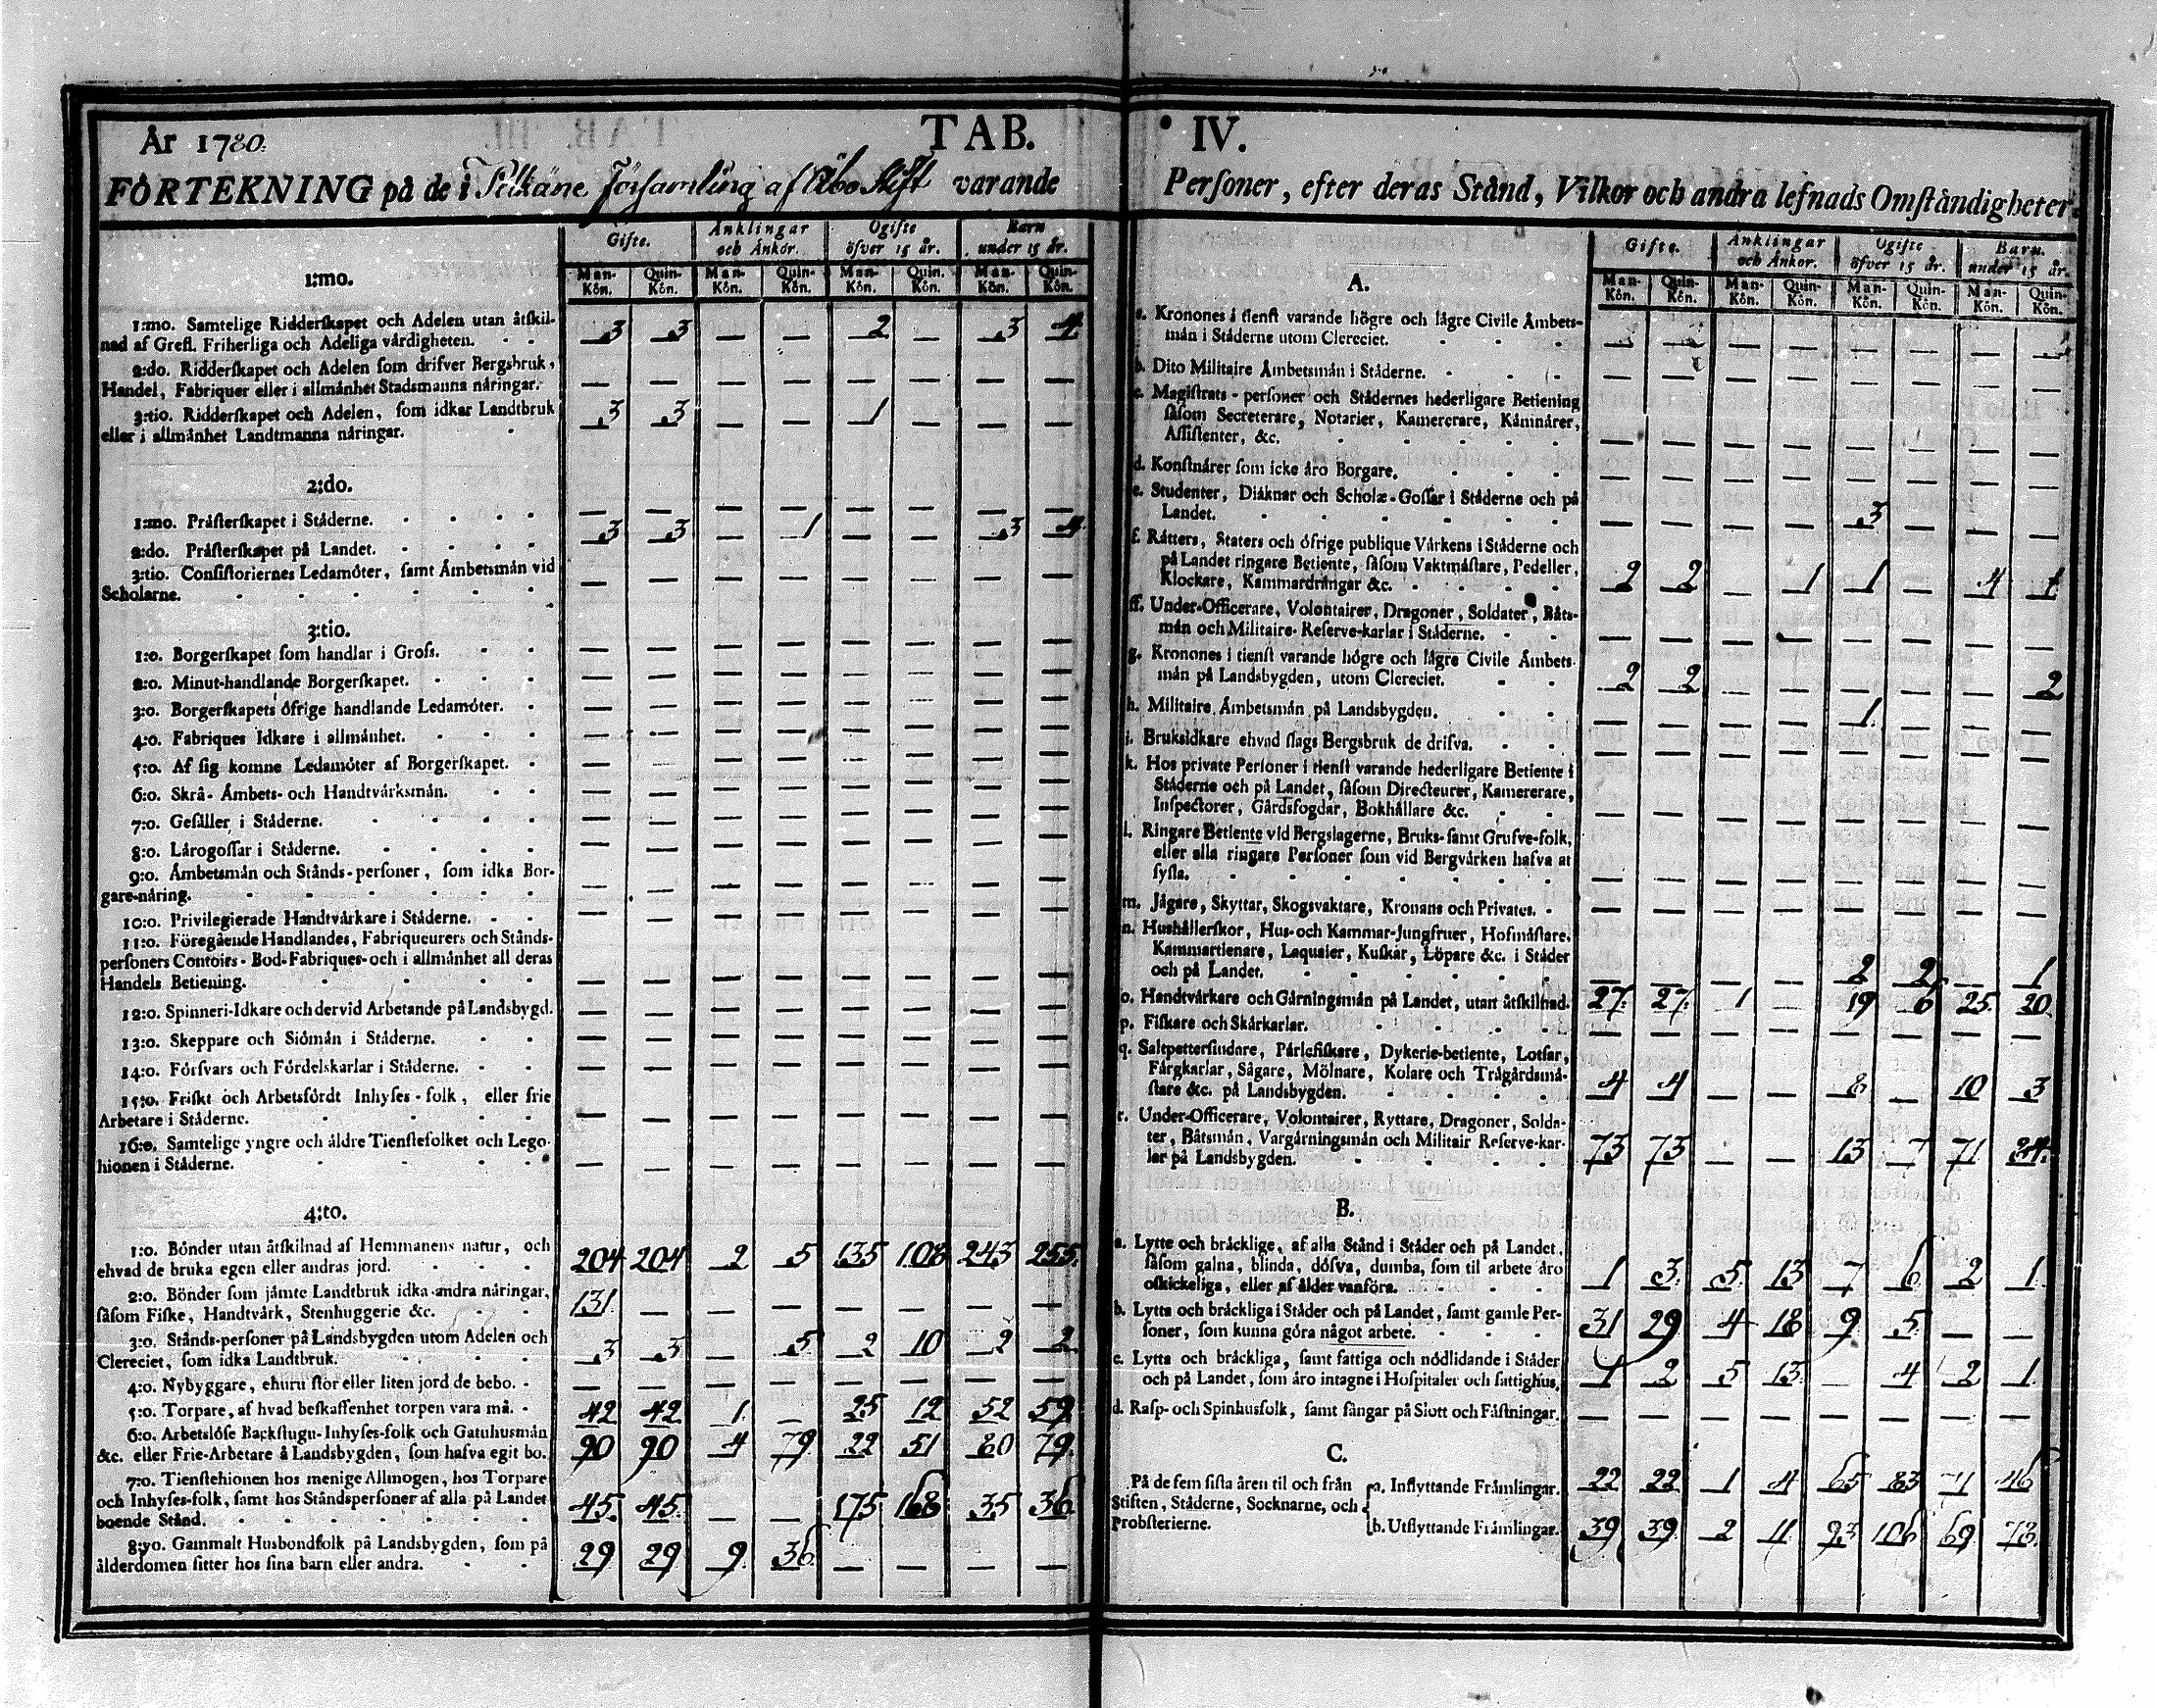 År 1780.
TAB. IV.
FÖRTEKNING på de i Pelkäne församling af Åbo Stift varande
Personer, efter deras Stånd, Vilkor och andra lefnads Omståndigheter.
Gifte. Änklingar och Änkor. Ogifte öfver 15 år. Barn under 15 år.
Man-Kön. Quin-Kön. Man-Kön. Quin-Kön. Man-Kön. Quin-Kön. Man-Kön. Quin-Kön.
1:mo.
1:mo. Samtelige Ridderskapet och Adelen utan åtskil-
nad af Grefl. Friherliga och Adeliga vårdigheten. 3 3 — — 2 — 3 4
2:do. Ridderskapet och Adelen som drifver Bergsbruk,
Handel, Fabriquer eller i allmånhet Stadsmanna nåringar. — — — — — — — —
3:tio. Ridderskapet och Adelen, som idkar Landtbruk 3 3 — — 1 — — —
eller i allmånhet Landtmanna nåringar.
2:do.
1:mo. Pråsterskapet i Ståderne. — — — — — — — —
2:do. Pråsterskapet på Landet. 3 3 — 1 — — 3 4
3:tio. Consistoriernes Ledamöter, samt Åmbetsmån vid
Scholarne. — — — — — — — —
3:tio.
1:o. Borgerskapet som handlar i Gross. — — — — — — — —
2:o. Minut-handlande Borgerskapet. — — — — — — — —
3:o. Borgerskapets öfrige handlande Ledamöter. — — — — — — — —
4:o. Fabriques Idkare i allmånhet. — — — — — — — —
5:o. Af sig komne Ledamöter af Borgerskapet. — — — — — — — —
6:o. Skrå- Åmbets- och Handtvårksmån. — — — — — — — —
7:o. Gesåller i Ståderne. — — — — — — — —
8:o. Lårogossar i Ståderne. — — — — — — — —
9:o. Åmbetsmån och Stånds-personer, som idka Bor-
gare-nåring. — — — — — — — —
10:o. Privilegierade Handtvårkare i Ståderne. — — — — — — — —
11:o. Föregående Handlandes, Fabriqueurers och Stånds-
personers Contoirs- Bod-Fabriques- och i allmånhet all deras
Handels Betiening. — — — — — — — —
12:o. Spinneri-Idkare och dervid Arbetande på Landsbygd. — — — — — — — —
13:o. Skeppare och Siömån i Ståderne. — — — — — — — —
14:o. Försvars och Fördelskarlar i Ståderne. — — — — — — — —
15:o. Friskt och Arbetsfördt Inhyses-folk, eller frie
Arbetare i Ståderne. — — — — — — — —
16:o. Samtelige yngre och åldre Tienstefolket och Lego-
hionen i Ståderne. — — — — — — — —
4:to.
1:o. Bönder utan åtskilnad af Hemmanens natur, och
ehvad de bruka egen eller andras jord. 204 204 2 5 135 108 243 255
2:o. Bönder som jåmte Landtbruk idka andra nåringar,
såsom Fiske, Handtvårk, Stenhuggerie &c. 131 — — — — — — —
3:o. Stånds-personer på Landsbygden utom Adelen och
Clereciet, som idka Landtbruk. 3 3 — 5 2 10 2 2
4:o. Nybyggare, ehuru stor eller liten jord de bebo. — — — — — — — —
5:o. Torpare, af hvad beskaffenhet torpen vara må. 42 42 1 — 25 12 52 59
6:o. Arbetslöse Backstugu- Inhyses-folk och Gatuhusmån
&c. eller Frie-Arbetare å Landsbygden, som hafva egit bo. 90 90 4 79 22 51 80 79
7:o. Tienstehionen hos menige Allmogen, hos Torpare
och Inhyses-folk, samt hos Ståndspersoner af alla på Landet
boende Stånd. 45 45 — — 175 168 35 36
8:vo. Gammalt Husbondfolk på Landsbygden, som på
ålderdomen sitter hos sina barn eller andra. 29 29 9 36 — — — —
Gifte. Änklingar och Änkor. Ogifte öfver 15 år. Barn. under 15 år.
Man-Kön. Quin-Kön. Man-Kön. Quin-Kön. Man-Kön. Quin-Kön. Man-Kön. Quin-Kön.
A.
a. Kronones i tienst varande högre och lågre Civile Åmbets-
mån i Ståderne utom Clereciet. — — — — — — — —
b. Dito Militaire Åmbetsmån i Ståderne. — — — — — — — —
c. Magistrats-personer och Stådernes hederligare Betiening
såsom Secreterare, Notarier, Kamererare, Kåmnårer,
Assistenter, &c. — — — — — — — —
d. Konstnårer som icke åro Borgare. — — — — — — — —
e. Studenter, Diåknar och Scholæ-Gossar i Ståderne och på
Landet. — — — — 3 — — —
f. Råtters, Staters och öfrige publique Vårkens i Ståderne och
på Landet ringare Betiente, såsom Vaktmåstare, Pedeller,
Klockare, Kammardrångar &c. 2 2 — 1 1 — 4 1
ff. Under-Officerare, Volontairer, Dragoner, Soldater, Båts-
mån och Militaire-Reserve-karlar i Ståderne. — — — — — — — —
g. Kronones i tienst varande högre och lågre Civile Åmbets-
mån på Landsbygden, utom Clereciet. 2 2 — — — — — 2
h. Militaire Åmbetsmån på Landsbygden. — — — — 1 — — —
i. Bruksidkare ehvad slags Bergsbruk de drifva. — — — — — — — —
k. Hos private Personer i tienst varande hederligare Betiente i
Ståderne och på Landet, såsom Directeurer, Kamererare,
Inspectorer, Gårdsfogdar, Bokhållare &c. — — — — — — — —
l. Ringare Betiente vid Bergslagerne, Bruks- samt Grufve-folk,
eller alla ringare Personer som vid Bergvårken hafva at
sysla. — — — — — — — —
m. Jågare, Skyttar, Skogsvaktare, Kronans och Privates. — — — — — — — —
n. Hushållerskor, Hus- och Kammar-Jungfruer, Hofmåstare,
Kammartienare, Laquaier, Kuskar, Löpare &c. i Ståder
och på Landet. — — — — 2 2 — 1
o. Handtvårkare och Gårningsmån på Landet, utan åtskilnad. 27 27 1 — 19 6 25 20
p. Fiskare och Skårkarlar. — — — — — — — —
q. Saltpettersiudare, Pårlefiskare, Dykerie-betiente, Lotsar,
Fårgkarlar, Sågare, Mölnare, Kolare och Trågårdsmå-
stare &c. på Landsbygden. 4 4 — — 8 — 10 3
r. Under-Officerare, Volontairer, Ryttare, Dragoner, Solda-
ter, Båtsmån, Vargårningsmån och Militair Reserve-kar-
lar på Landsbygden. 73 73 — — 13 7 71 84
B.
a. Lytte och bråcklige, af alla Stånd i Ståder och på Landet,
såsom galna, blinda, döfva, dumba, som til arbete åro
oskickeliga, eller af ålder vanföra. 1 3 5 13 7 6 2 1
b. Lytta och bråckliga i Ståder och på Landet, samt gamle Per-
soner, som kunna göra något arbete. 31 29 4 18 9 5 — —
c. Lytta och bråckliga, samt fattiga och nödlidande i Ståder
och på Landet, som åro intagne i Hospitaler och fattighus. 1 2 5 13 — 4 2 1
d. Rasp- och Spinhusfolk, samt fångar på Slott och Fåstningar. — — — — — — — —
C.
På de fem sista åren til och från
Stiften, Ståderne, Socknarne, och
Probsterierne.
a. Inflyttande Fråmlingar. 22 22 1 4 65 83 46
b. Utflyttande Fråmlingar. 39 39 2 11 93 106 69 73